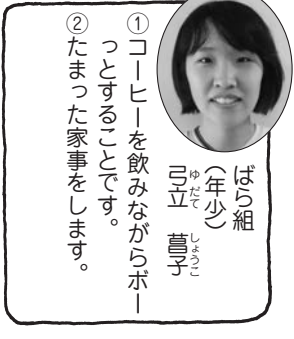 ばら組
（年少）
弓立　菖子
ゆだて　しょうこ
①コーヒーを飲みながらボー
っとすることです。
②たまった家事をします。